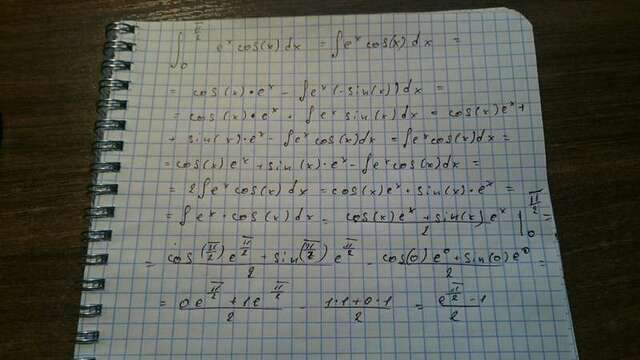 ∫₀^(π/2) eˣ cos(x) dx = ∫ eˣ cos(x) dx =
= cos(x) · eˣ − ∫ eˣ (−sin(x)) dx =
= cos(x) · eˣ + ∫ eˣ sin(x) dx = cos(x) eˣ +
+ sin(x) · eˣ − ∫ eˣ cos(x) dx = ∫ eˣ cos(x) dx =
= cos(x) eˣ + sin(x) · eˣ − ∫ eˣ cos(x) dx =
= 2 ∫ eˣ cos(x) dx = cos(x) eˣ + sin(x) · eˣ =
= ∫ eˣ · cos(x) dx = (cos(x) eˣ + sin(x) eˣ)/2 |₀^(π/2) =
= (cos(π/2) e^(π/2) + sin(π/2) e^(π/2))/2 − (cos(0) e⁰ + sin(0) e⁰)/2 =
= (0 e^(π/2) + 1 e^(π/2))/2 − (1·1 + 0·1)/2 = (e^(π/2) − 1)/2